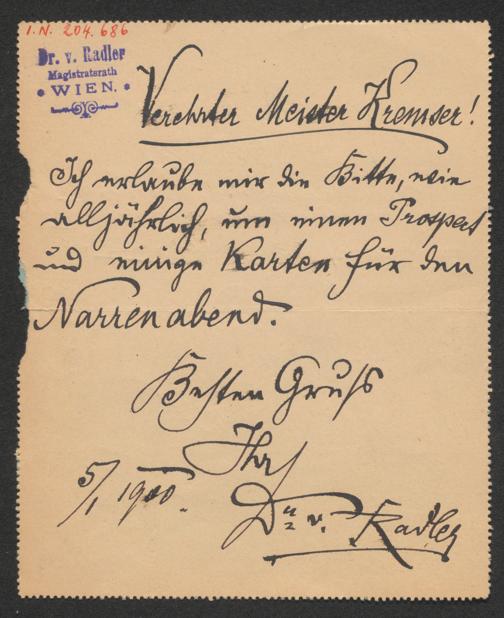 I.N. 204.686
Dr. v. Radler
Magistratsrath
WIEN.
Verehrter Meister Kremser!
Ich erlaube mir die Bitte, wie
alljährlich, um einen Prospect
und einige Karten für den
Narrenabend.
Besten Gruß
Ihr
5/1 1900.
Dr. v. Radler